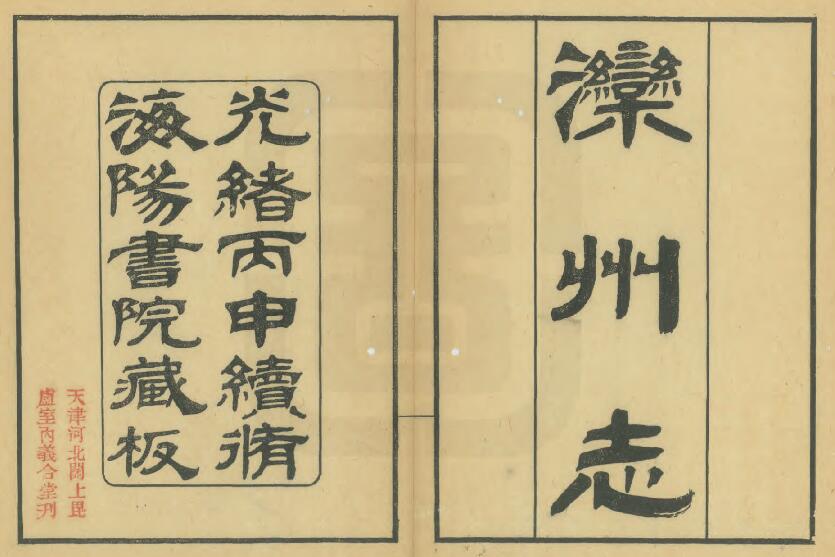 灤州志
光緒丙申續脩
海陽書院藏板
天津河北關上毘
盧室內義合堂刊